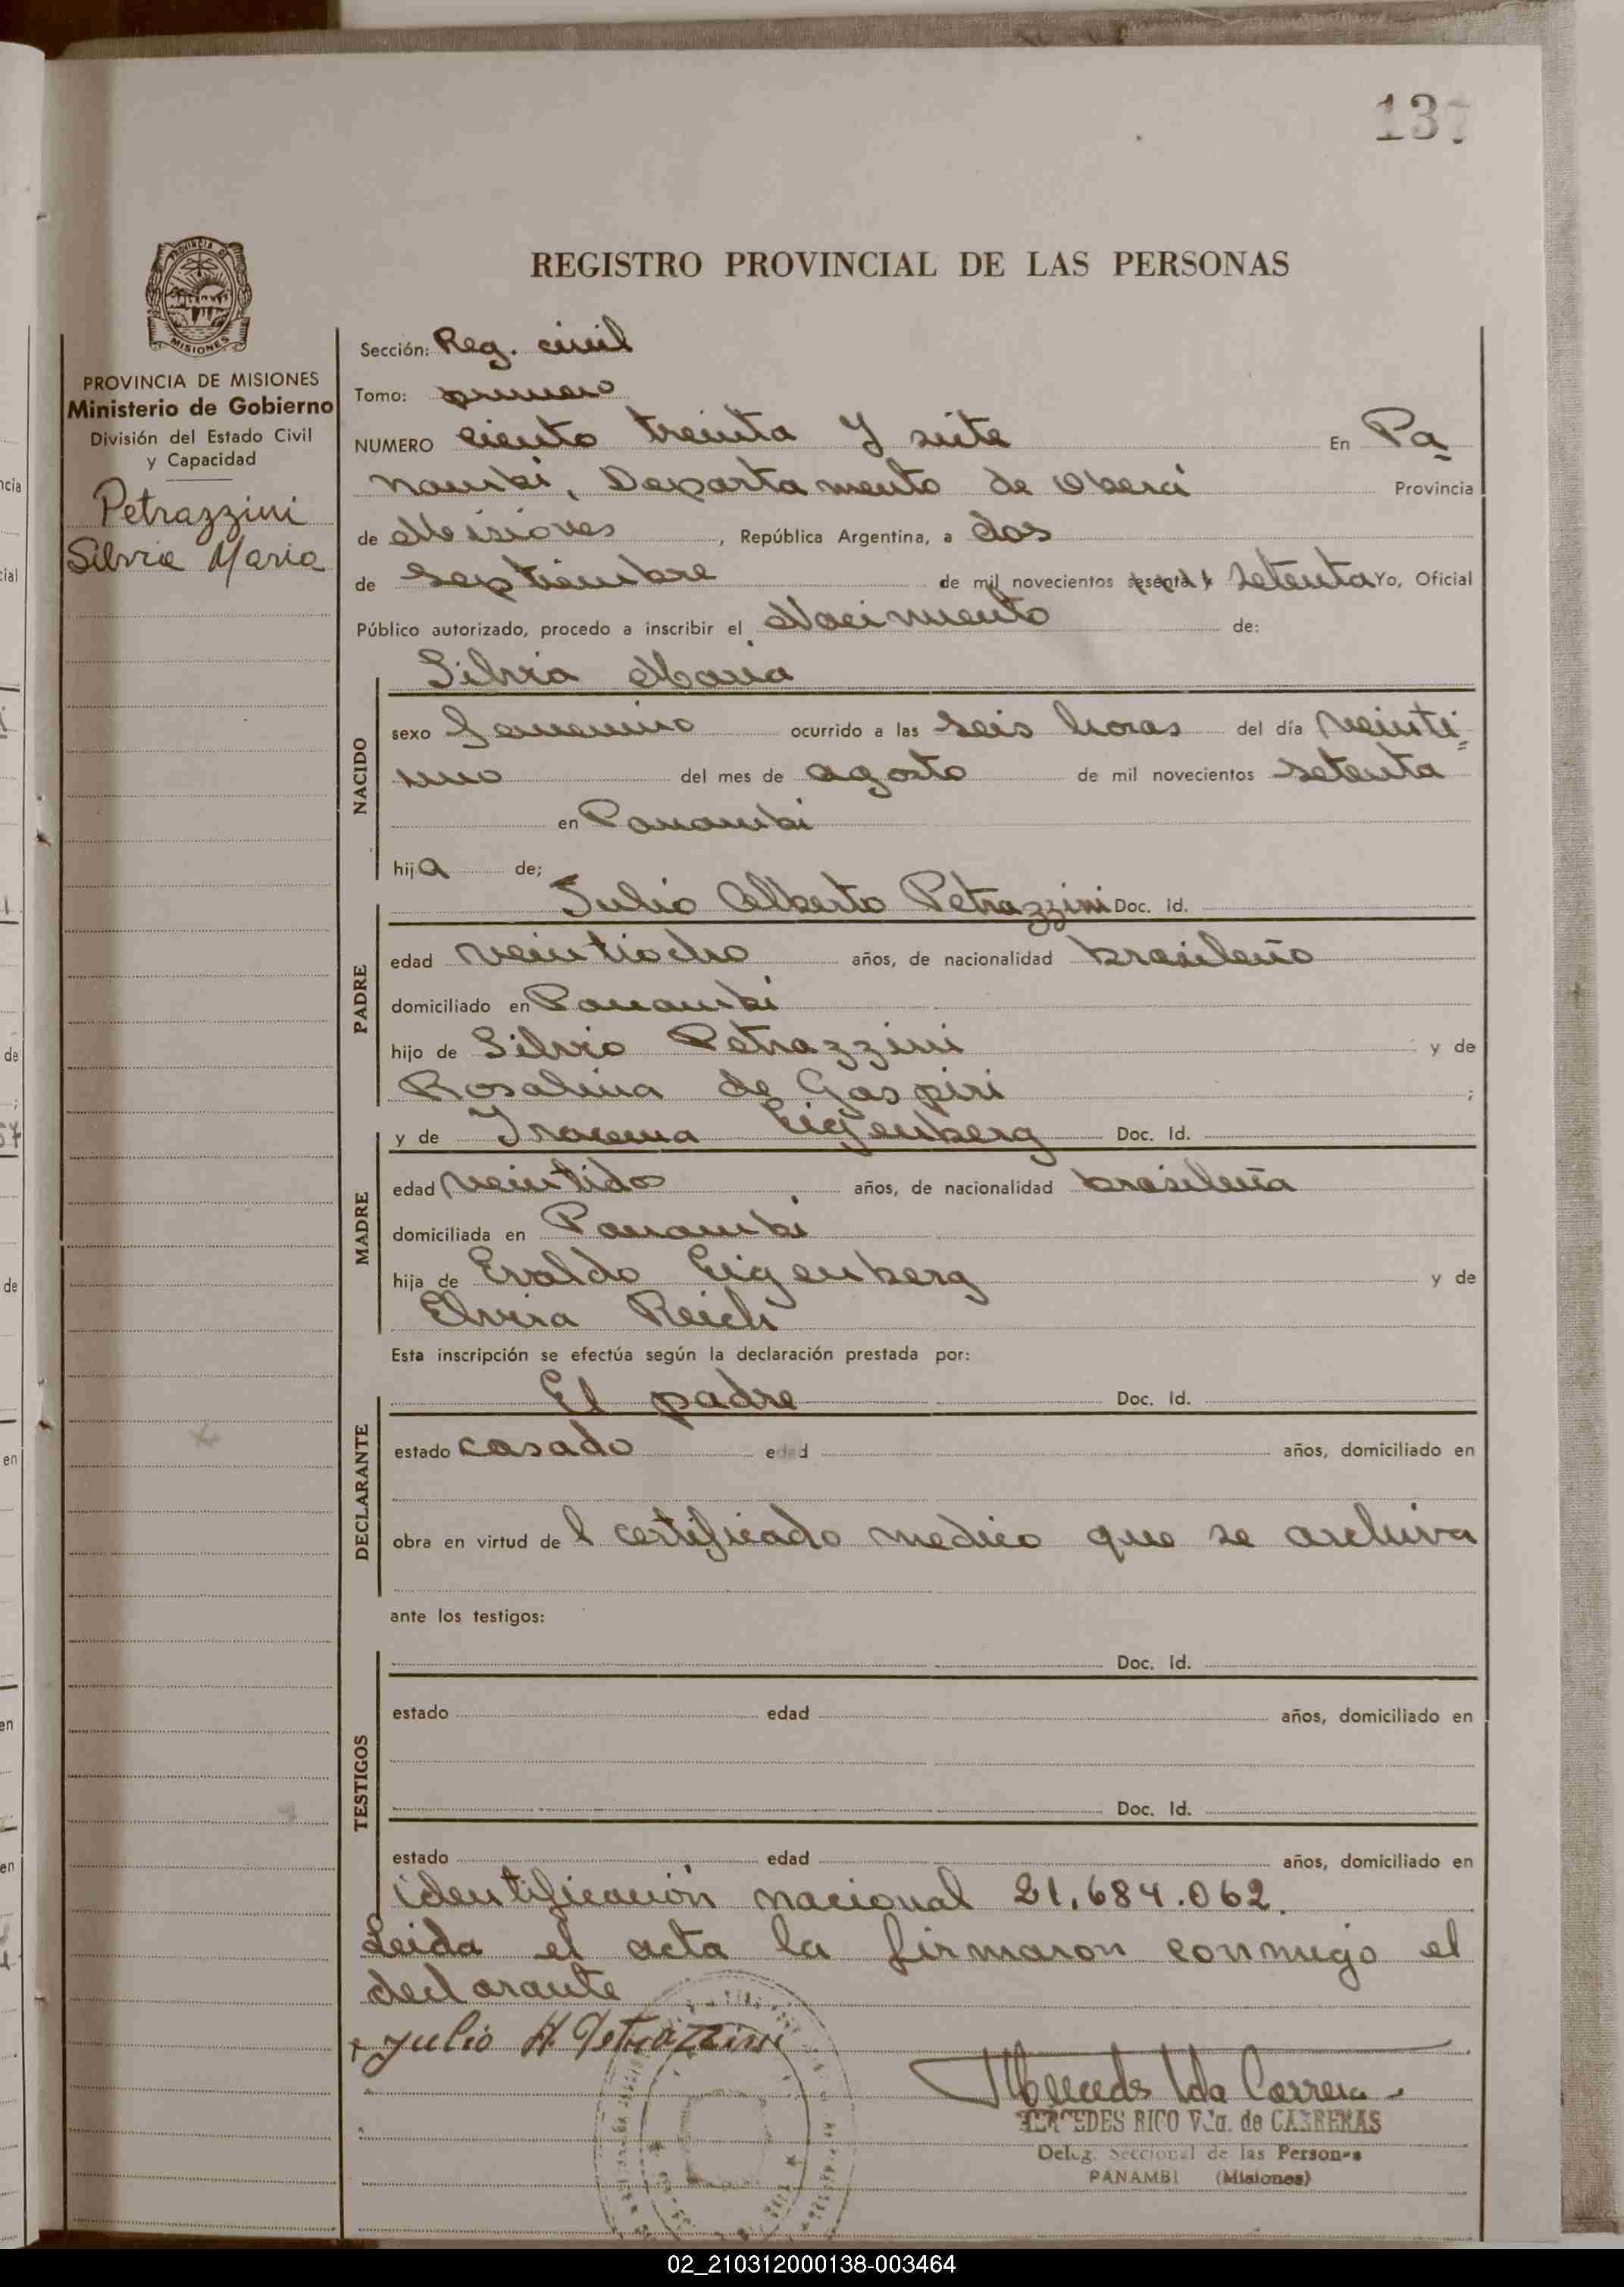 137
REGISTRO PROVINCIAL DE LAS PERSONAS
PROVINCIA DE
MISIONES
PROVINCIA DE MISIONES
Ministerio de Gobierno
División del Estado Civil
y Capacidad
Petrazzini
Silvia Maria
Sección: Reg. civil
Tomo: primero
NUMERO ciento treinta y siete En Pa
nambi, Departamento de Oberá Provincia
de Misiones, República Argentina, a dos
de Septiembre de mil novecientos sesenta y setenta Yo, Oficial
Público autorizado, procedo a inscribir el Nacimiento de:
Silvia Maria
NACIDO
sexo Femenino ocurrido a las seis horas del día veinti
uno del mes de agosto de mil novecientos setenta
en Panambi
hija de;
PADRE
Julio Alberto Petrazzini Doc. Id.
edad veintiocho años, de nacionalidad brasileño
domiciliado en Panambi
hijo de Silvio Petrazzini y de
Rosalina de Gaspiri ;
MADRE
y de Iracema Eigenberg Doc. Id.
edad veintidos años, de nacionalidad brasileña
domiciliada en Panambi
hija de Evaldo Eigenberg y de
Elvira Reich
Esta inscripción se efectúa según la declaración prestada por:
DECLARANTE
El padre Doc. Id.
estado casado edad años, domiciliado en
obra en virtud del certificado medico que se archiva
ante los testigos:
TESTIGOS
Doc. Id.
estado edad años, domiciliado en
Doc. Id.
estado edad años, domiciliado en
identificación nacional 21.684.062.
Leida el acta la firmaron conmigo el
declarante
Julio A Petrazzini
Mercedes Vda Carrera
MERCEDES RICO Vda. de CARRERAS
Deleg. Seccional de las Personas
PANAMBI (Misiones)
02_210312000138-003464